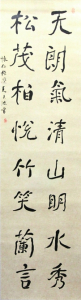 天朗氣清山明水秀
松茂柏悅竹笑蘭言